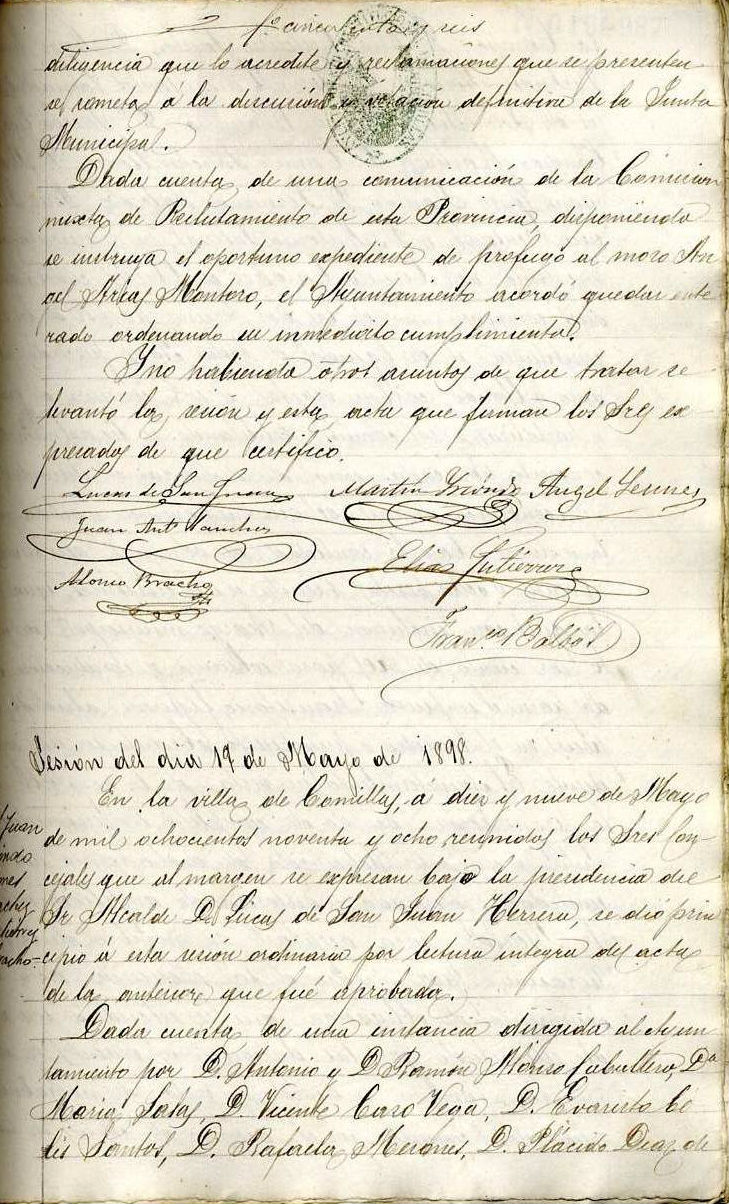 Fº cincuenta y seis
diligencia que lo acredite y reclamaciones que se presenten
se someta á la discusión y votación definitiva de la Junta
Municipal.
Dada cuenta de una comunicación de la Comision
mixta de Reclutamiento de esta Provincia, disponiendo
se instruya el oportuno expediente de profugo al mozo An
gel Arias Montoro, el Ayuntamiento acordó quedar ente
rado ordenando su inmediato cumplimiento.
Y no habiendo otros asuntos de que tratar se
levantó la sesión y esta acta que firman los Sres ex-
presados de que certifico.
Lucas de San Juan Martín Yriondo Angel
Juan Antº Sanchez
Elias Gutiérrez
Alonso Bracho
Franco Balbás
Sesión del dia 19 de Mayo de 1898.
En la villa de Comillas, á diez y nueve de Mayo
de mil ochocientos noventa y ocho reunidos los Sres Con-
cejales que al margen se expresan bajo la presidencia del
Sr Alcalde D. Lucas de San Juan Herrera, se dió prin
cipio á esta sesión ordinaria por lectura íntegra del acta
de la anterior que fué aprobada.
Dada cuenta de una instancia dirigida al Ayun
tamiento por D. Antonio y D Ramón Alonso Caballero, Dª
Maria Salas, D. Vicente Caso Vega, D. Evaristo Ce
lis Santos, D. Rafaela Merones, D. Plácido Diaz de
Juan